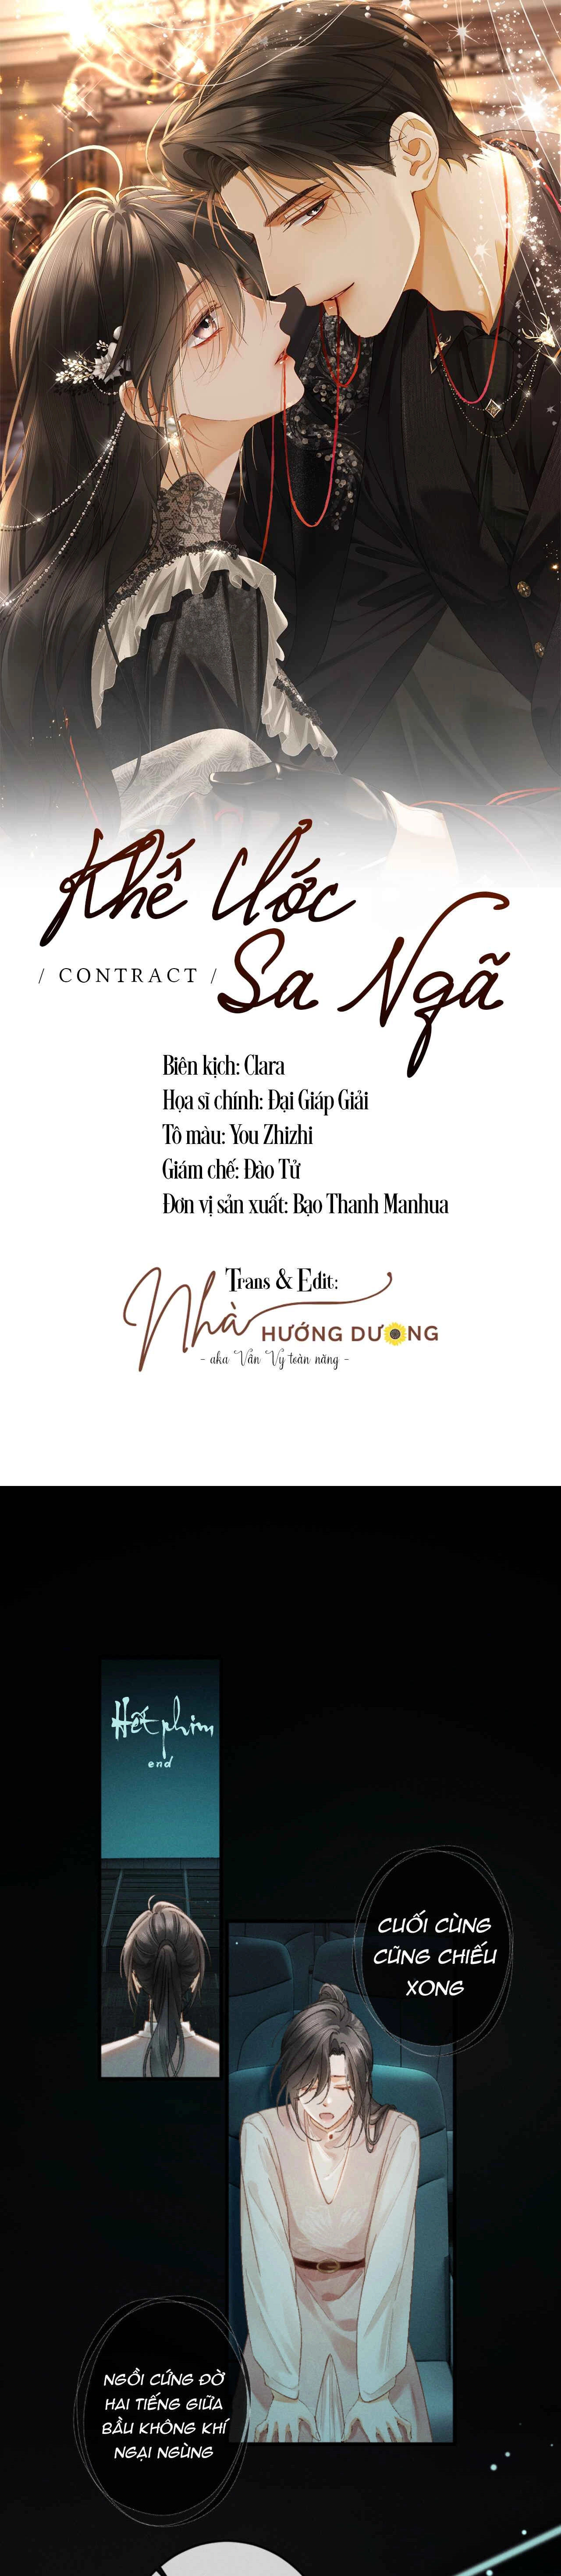 Khế Ước
/ CONTRACT /
Sa Ngã
Biên kịch: Clara
Họa sĩ chính: Đại Giáp Giải
Tô màu: You Zhizhi
Giám chế: Đào Tử
Đơn vị sản xuất: Bạo Thanh Manhua
Trans & Edit:
Nhà HƯỚNG DƯƠNG
- aka Vân Vy toàn năng -
Hết phim
end
CUỐI CÙNG
CŨNG CHIẾU
XONG
NGỒI CỨNG ĐỜ
HAI TIẾNG GIỮA
BẦU KHÔNG KHÍ
NGẠI NGÙNG